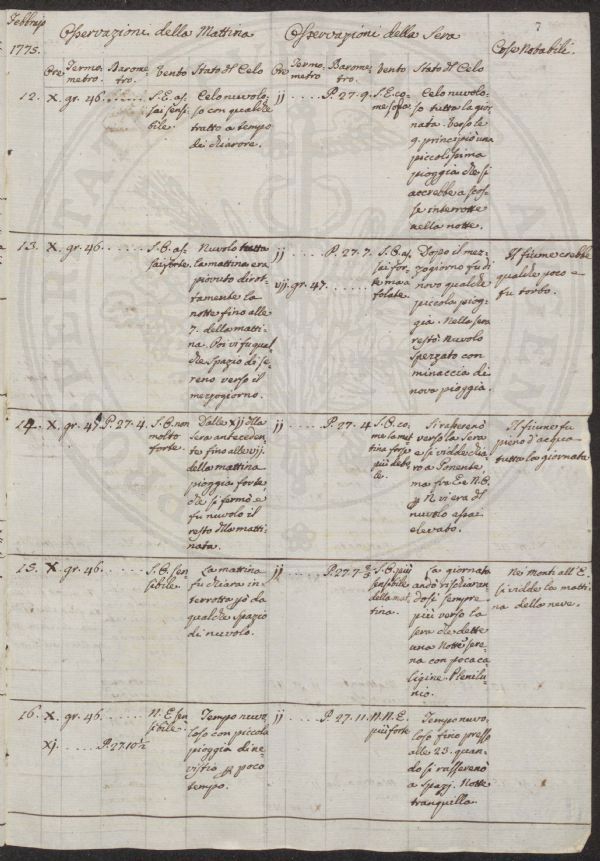 Febbrajo 1775.
Osservazioni della Mattina
Osservazioni della Sera
7
Cose Notabili.
Ore Termometro. Barometro. Vento Stato del Celo
Ore Termometro Barometro. Vento Stato del Celo
12. X. gr. 46. . . . . .
S. E. assai sensibile.
Celo nuvolo-
so con qualche
tratto a tempo
di chiarore.
ij . . . . P. 27. 9.
S. E. co-
me sopra.
Celo nuvolo-
so tutta la gior-
nata. Verso le
9. principiò una
piccolissima
pioggia che si
accrebbe a scos-
se interrotte
nella notte.
13. X. gr. 46. . . . . .
S. E. as-
sai forte.
Nuvolo tutta
la mattina era
piovuto dirot-
tamente la
notte fino alle
7. della matti-
na. Poi vi fu qual
che spazio di se-
reno verso il
mezzogiorno.
ij . . . . P. 27. 7.
vij. gr. 47. . . . . .
S. E. as-
sai for-
te ma a
folate.
Dopo il mez-
zogiorno fu di
novo qualche
piccola piog-
gia. Nella sera
restò Nuvolo
spezzato con
minaccia di
nova pioggia.
Il fiume crebbe
qualche poco e
fu torbo.
14. X. gr. 47. P. 27. 4.
S. E. non
molto
forte.
Dalle xij della
sera anteceden-
te fino alle vij.
della mattina
pioggia forte
che si fermò e
fu nuvolo il
resto della matti-
nata.
ij . . . . P. 27. 4.
S. E. co-
me la mat
tina forse
più debo-
le.
Si rasserenò
verso la Sera
e si vidde chia-
ro a Ponente,
ma fra E e N. E.
vi era del
nuvolo assai
elevato.
Il fiume fu
pieno d'acqua
tutta la giornata
15. X. gr. 46.
S. E. sen-
sibile.
La mattina
fu chiara in-
terrotta però da
qualche spazio
di nuvolo.
ij . . . . P. 27. 7 2/3
S. E. più
sensibile
della mat-
tina.
La giornata
andò rischiaran
dosi sempre
più verso la
sera che dette
una Notte sere-
na con poca ca
ligine. Plenilu-
nio.
Nei monti all'E.
si vidde la matti-
na della neve.
16. X. gr. 46. . . . . .
xj. . . . . . P. 27. 10 1/2
N. E. sen
sibile.
Tempo nuvo-
loso con piccola
pioggia di ne-
vistio per poco
tempo.
ij . . . . P. 27. 11.
N. N. E.
più forte
Tempo nuvo-
loso fino presso
alle 23. quan-
do si rasserenò
a spazj. Notte
tranquilla.